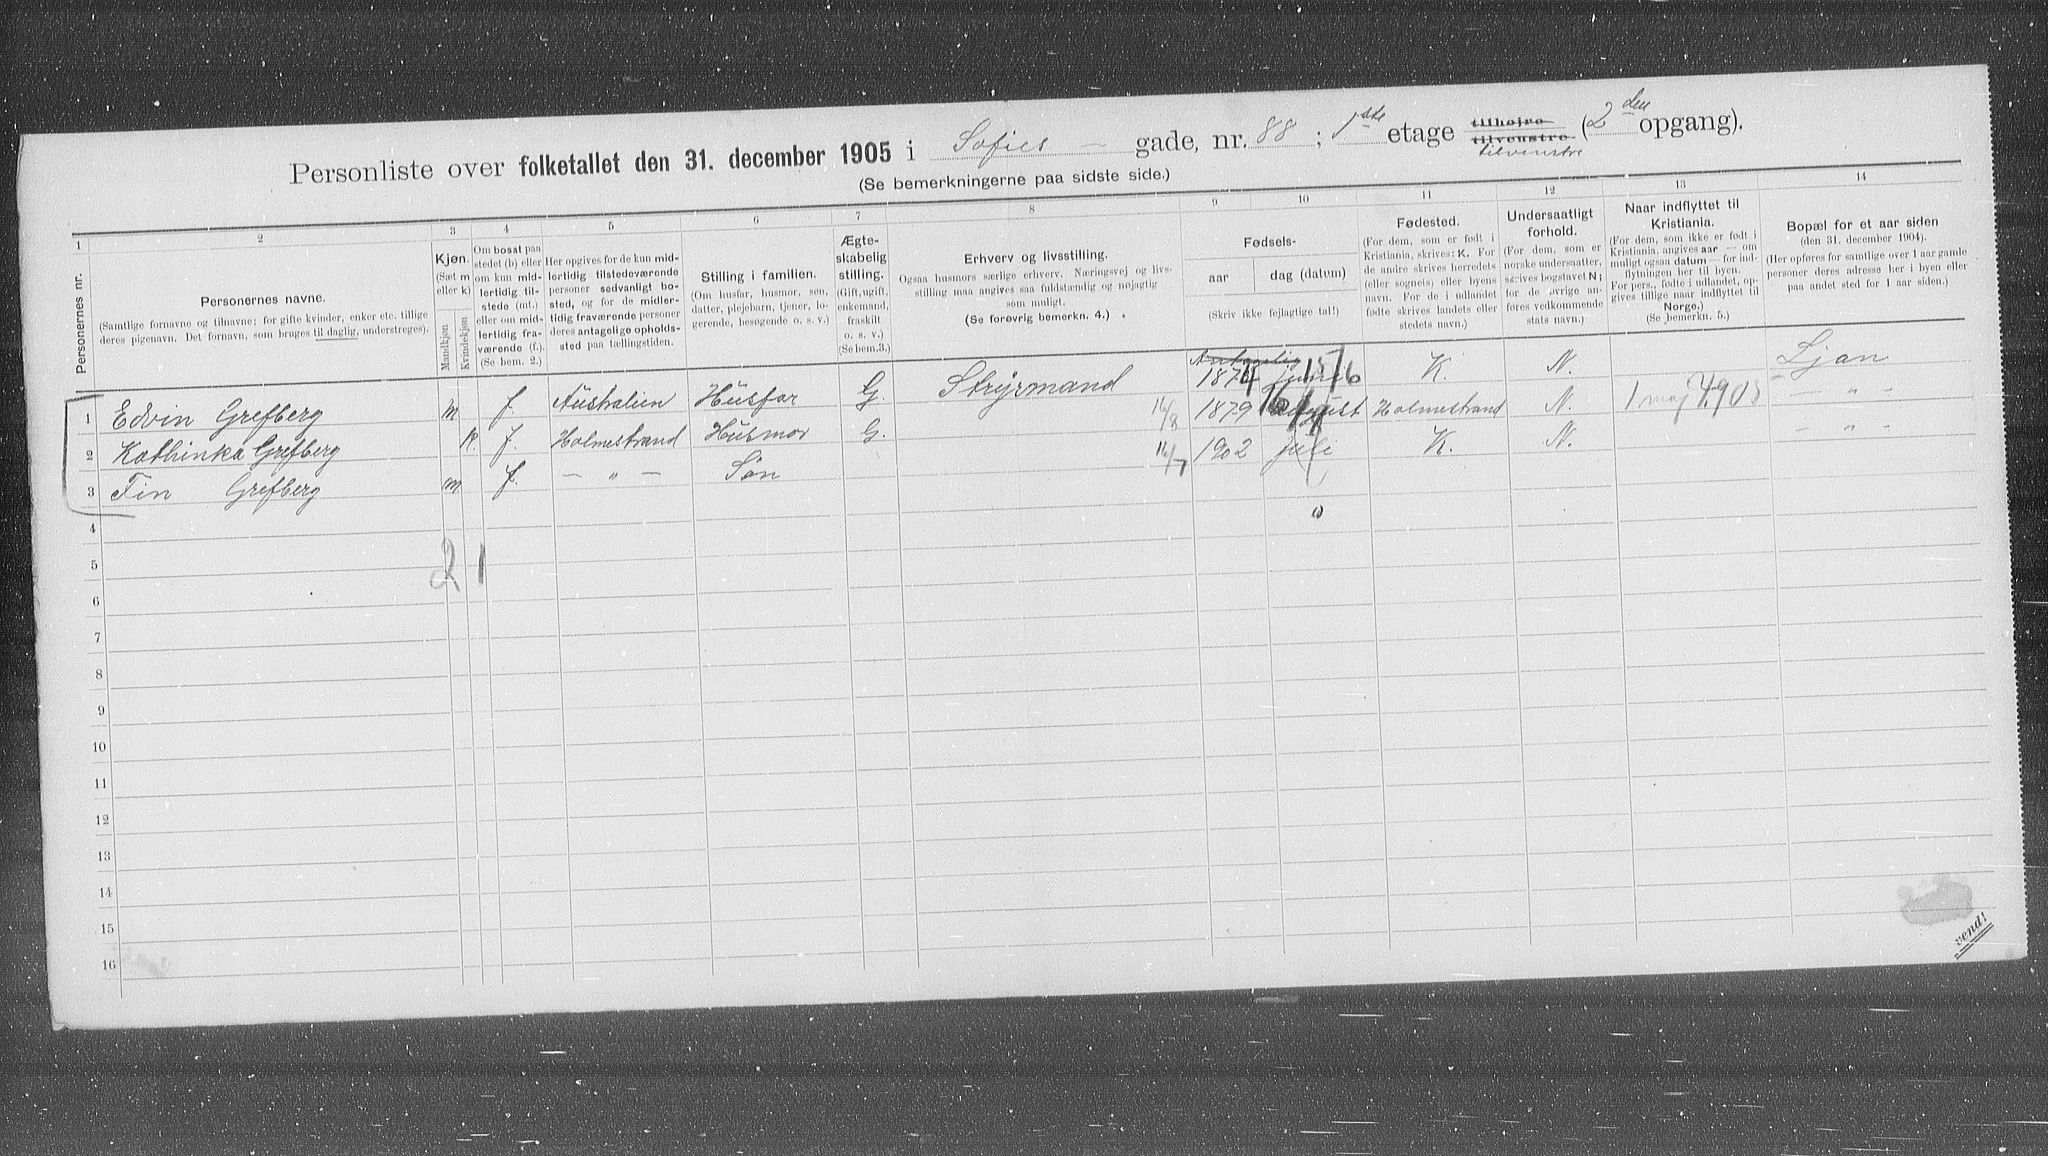 Personliste over folketallet den 31. december 1905 i Sofies - gade, nr. 88 ; 1ste etage tilhøjre tilvenstre tilvenstre (2den opgang).
(Se bemerkningerne paa sidste side.)
1 2 3 4 5 6 7 8 9 10 11 12 13 14
Personernes nr.
Personernes navne.
(Samtlige fornavne og tilnavne; for gifte kvinder, enker etc. tillige
deres pigenavn. Det fornavn, som bruges til daglig, understreges).
Kjøn.
(Sæt m
eller k)
Mandkjøn.
Kvindekjøn.
Om bosat paa
stedet (b) eller
om kun mid-
lertidig til-
stede (mt.)
eller om mid-
lertidig fra-
værende (f.).
(Se bem. 2.)
Her opgives for de kun mid-
lertidig tilstedeværende
personer sedvanligt bo-
sted, og for de midler-
tidig fraværende personer
deres antagelige opholds-
sted paa tællingstiden.
Stilling i familien.
(Om husfar, husmor, søn,
datter, plejebarn, tjener, lo-
gerende, besøgende o. s. v.)
Ægte-
skabelig
stilling.
(Gift, ugift,
enkemand,
fraskilt
o. s. v.)
(Se bem. 3.)
Erhverv og livsstilling.
Ogsaa husmors særlige erhverv. Næringsvej og livs-
stilling maa angives saa fuldstændig og nøjagtig
som muligt.
(Se forøvrig bemerkn. 4.)
Fødsels-
aar dag (datum)
(Skriv ikke fejlagtige tal!)
Fødested.
(For dem, som er født i
Kristiania, skrives: K. For
de andre skrives herredets
(eller sognets) eller byens
navn. For de i udlandet
fødte skrives landets eller
stedets navn.)
Undersaatligt
forhold.
(For dem, som er
norske undersaatter,
skrives bogstavet N;
for de øvrige an-
føres vedkommende
stats navn.)
Naar indflyttet til
Kristiania.
(For dem, som ikke er født i
Kristiania, angives aar — om
muligt ogsaa datum — for ind-
flytningen her til byen.
For pers., fødte i udlandet, op-
gives tillige naar indflyttet til
Norge.)
(Se bemerkn. 5.)
Bopæl for et aar siden
(den 31. december 1904).
(Her opføres for samtlige over 1 aar gamle
personer deres adresse her i byen eller
paa andet sted for 1 aar siden.)
1 Edvin Grefberg m f. Australien Husfar G. Stryrmand 1874 juni 15/6 K. N. Ljan
2 Kathinka Grefberg K. f. Holmestrand Husmor G. 16/8 1879 august Holmestrand N. 1 maj 1905 — „ —
3 Fin Grefberg m f. — „ — Søn 16/7 1902 juli K. N. — „ —
4
5 2 1
6
7
8
9
10
11
12
13
14
15
16
vend!